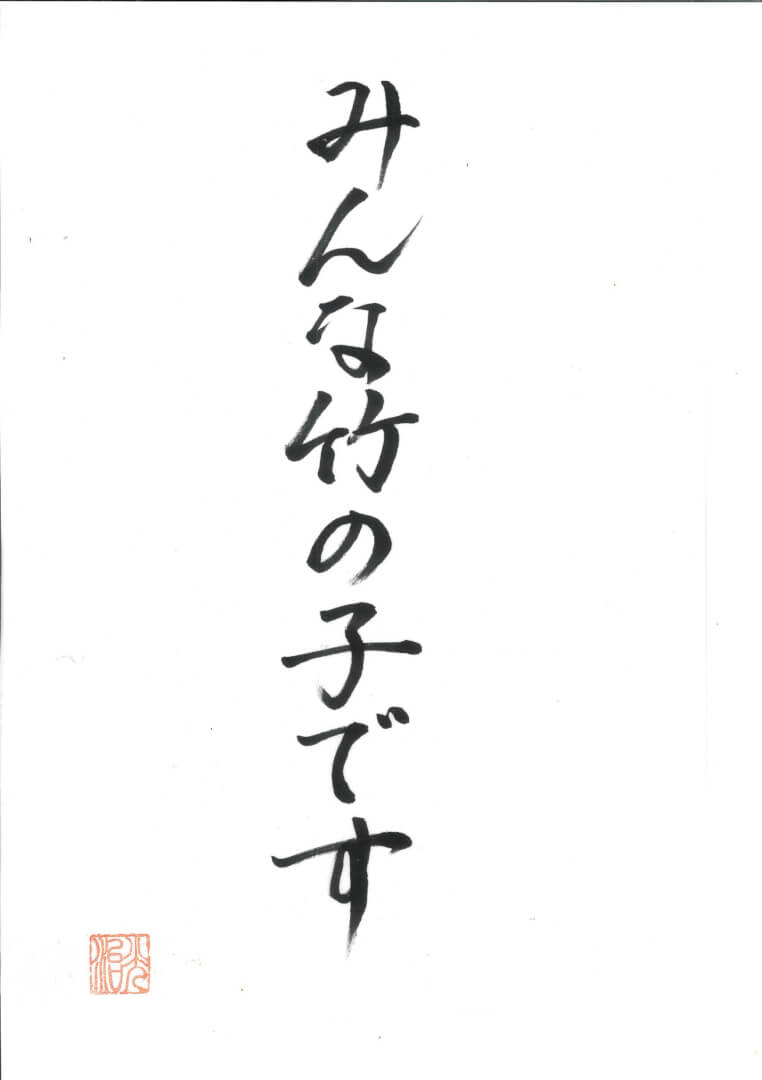 みんな竹の子です